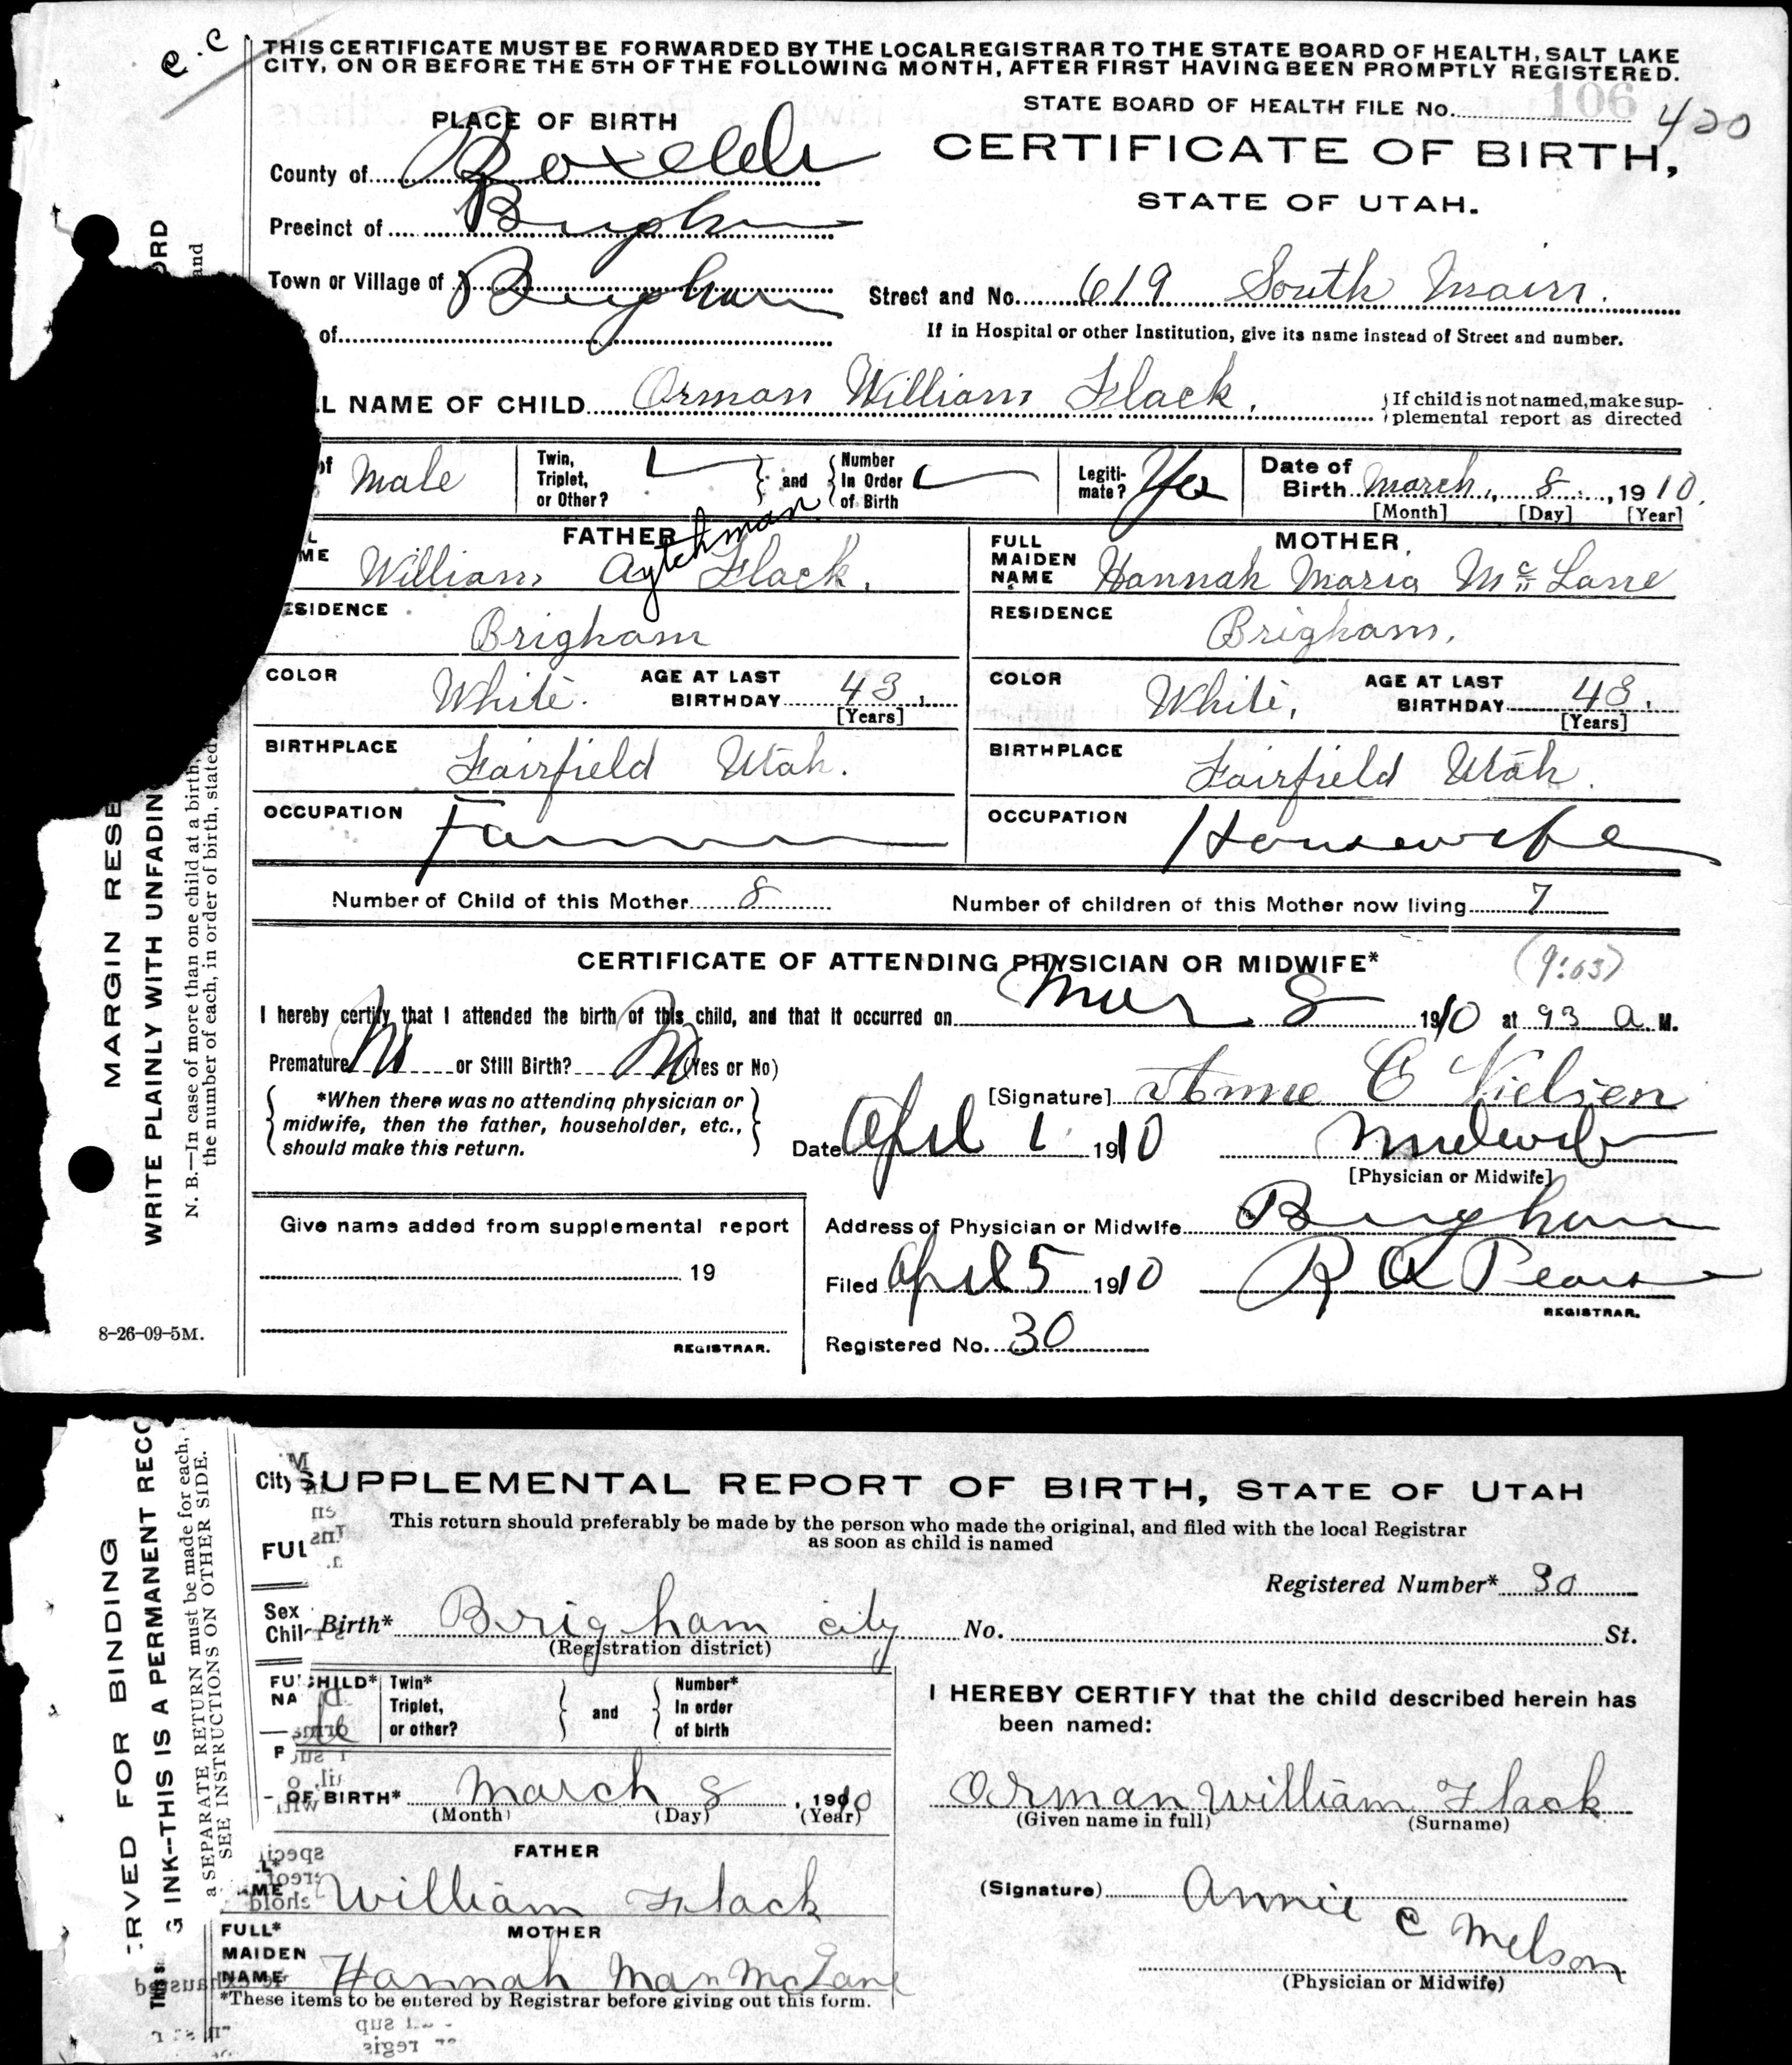 e.c
THIS CERTIFICATE MUST BE FORWARDED BY THE LOCAL REGISTRAR TO THE STATE BOARD OF HEALTH, SALT LAKE
CITY, ON OR BEFORE THE 5TH OF THE FOLLOWING MONTH, AFTER FIRST HAVING BEEN PROMPTLY REGISTERED.
STATE BOARD OF HEALTH FILE No. 106 420
PLACE OF BIRTH
CERTIFICATE OF BIRTH,
STATE OF UTAH.
County of Boxelder
Precinct of Brigham
Town or Village of Brigham
Street and No. 619 South Main.
of
If in Hospital or other Institution, give its name instead of Street and number.
L NAME OF CHILD Orman William Flack. }If child is not named, make sup-
plemental report as directed
of Male
Twin, Triplet, or Other? and Number In Order of Birth
Legiti-mate? Yes
Date of Birth March, 8, 1910.
[Month] [Day] [Year]
FATHER
William Aytchman Flack.
MOTHER
FULL MAIDEN NAME Hannah Maria McLane
ESIDENCE Brigham
RESIDENCE Brigham.
COLOR White. AGE AT LAST BIRTHDAY 43. [Years]
COLOR White, AGE AT LAST BIRTHDAY 43. [Years]
BIRTHPLACE Fairfield Utah.
BIRTHPLACE Fairfield Utah.
OCCUPATION Farmer
OCCUPATION Housewife
Number of Child of this Mother 8 Number of children of this Mother now living 7
CERTIFICATE OF ATTENDING PHYSICIAN OR MIDWIFE* (9:03)
I hereby certify that I attended the birth of this child, and that it occurred on Mar 8 1910 at 93 a M.
Premature No or Still Birth? No (Yes or No)
*When there was no attending physician or
midwife, then the father, householder, etc.,
should make this return.
[Signature] Annie C Nielsen
Date April 1 1910 Midwife
[Physician or Midwife]
Give name added from supplemental report
19
REGISTRAR.
Address of Physician or Midwife Brigham
Filed April 5 1910 R A Pearse
REGISTRAR.
Registered No. 30
8-26-09-5M.
MARGIN RESE
WRITE PLAINLY WITH UNFADIN
ORD
N. B.—In case of more than one child at a birth,
the number of each, in order of birth, stated
and
SUPPLEMENTAL REPORT OF BIRTH, STATE OF UTAH
City
This return should preferably be made by the person who made the original, and filed with the local Registrar
as soon as child is named
FUL
Registered Number* 30
Sex
Chil
Birth* Brigham city No. St.
(Registration district)
FU
NA
CHILD* Twin* Triplet, or other? and Number* In order of birth
I HEREBY CERTIFY that the child described herein has
been named:
OF BIRTH* March 8, 1910
(Month) (Day) (Year)
Orman William Flack
(Given name in full) (Surname)
FATHER
William Flack
(Signature) Annie C Nielson
(Physician or Midwife)
MOTHER
FULL* MAIDEN NAME Hannah Mari McLane
*These items to be entered by Registrar before giving out this form.
RVED FOR BINDING
G INK--THIS IS A PERMANENT RECO
a SEPARATE RETURN must be made for each,
SEE INSTRUCTIONS ON OTHER SIDE.